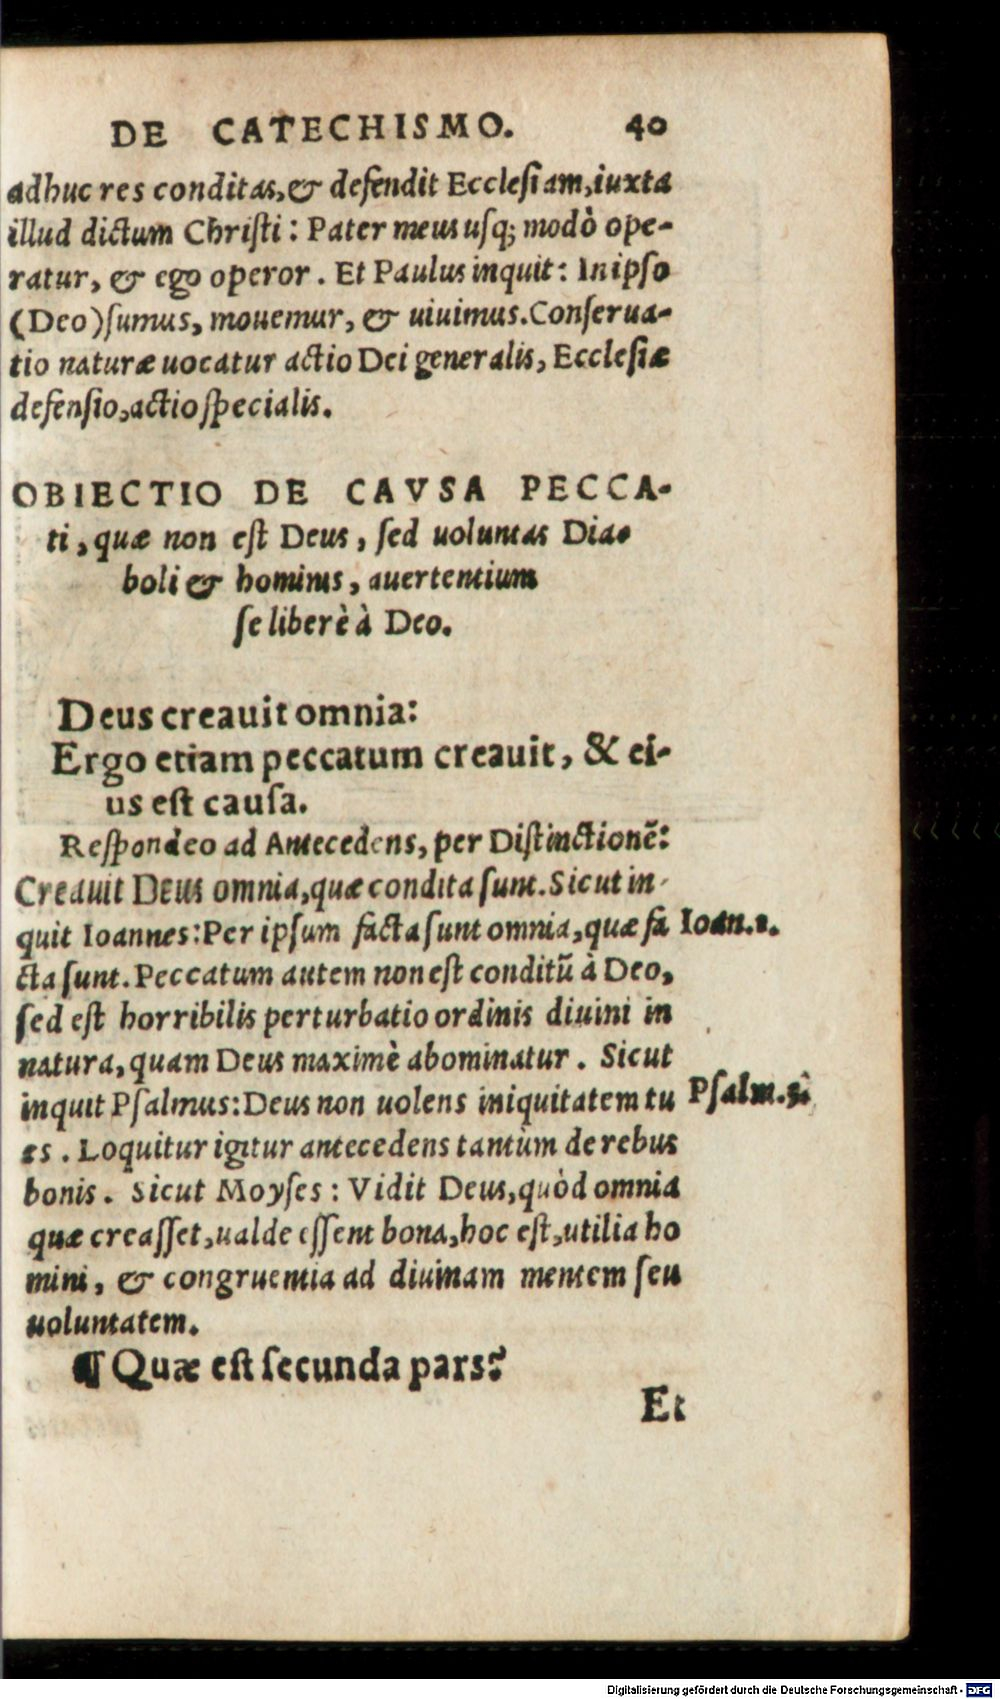 DE CATECHISMO. 40
adhuc res conditas, & defendit Ecclesiam, iuxta
illud dictum Christi: Pater meus usq; modò ope-
ratur, & ego operor. Et Paulus inquit: In ipso
(Deo) sumus, mouemur, & uiuimus. Conserua-
tio naturæ uocatur actio Dei generalis, Ecclesiæ
defensio, actio specialis.
OBIECTIO DE CAVSA PECCA-
ti, quæ non est Deus, sed uoluntas Dia-
boli & hominis, auertentium
se liberè à Deo.
Deus creauit omnia:
Ergo etiam peccatum creauit, & ei-
us est causa.
Respondeo ad Antecedens, per Distinctionẽ:
Creauit Deus omnia, quæ condita sunt. Sicut in-
quit Ioannes: Per ipsum facta sunt omnia, quæ fa Ioan.1.
cta sunt. Peccatum autem non est conditũ à Deo,
sed est horribilis perturbatio ordinis diuini in
natura, quam Deus maximè abominatur. Sicut
inquit Psalmus: Deus non uolens iniquitatem tu Psalm.
es. Loquitur igitur antecedens tantùm de rebus
bonis. Sicut Moyses: Vidit Deus, quòd omnia
quæ creasset, ualde essent bona, hoc est, utilia ho
mini, & congruentia ad diuinam mentem seu
uoluntatem.
¶ Quæ est secunda pars?
Et
Digitalisierung gefördert durch die Deutsche Forschungsgemeinschaft - DFG